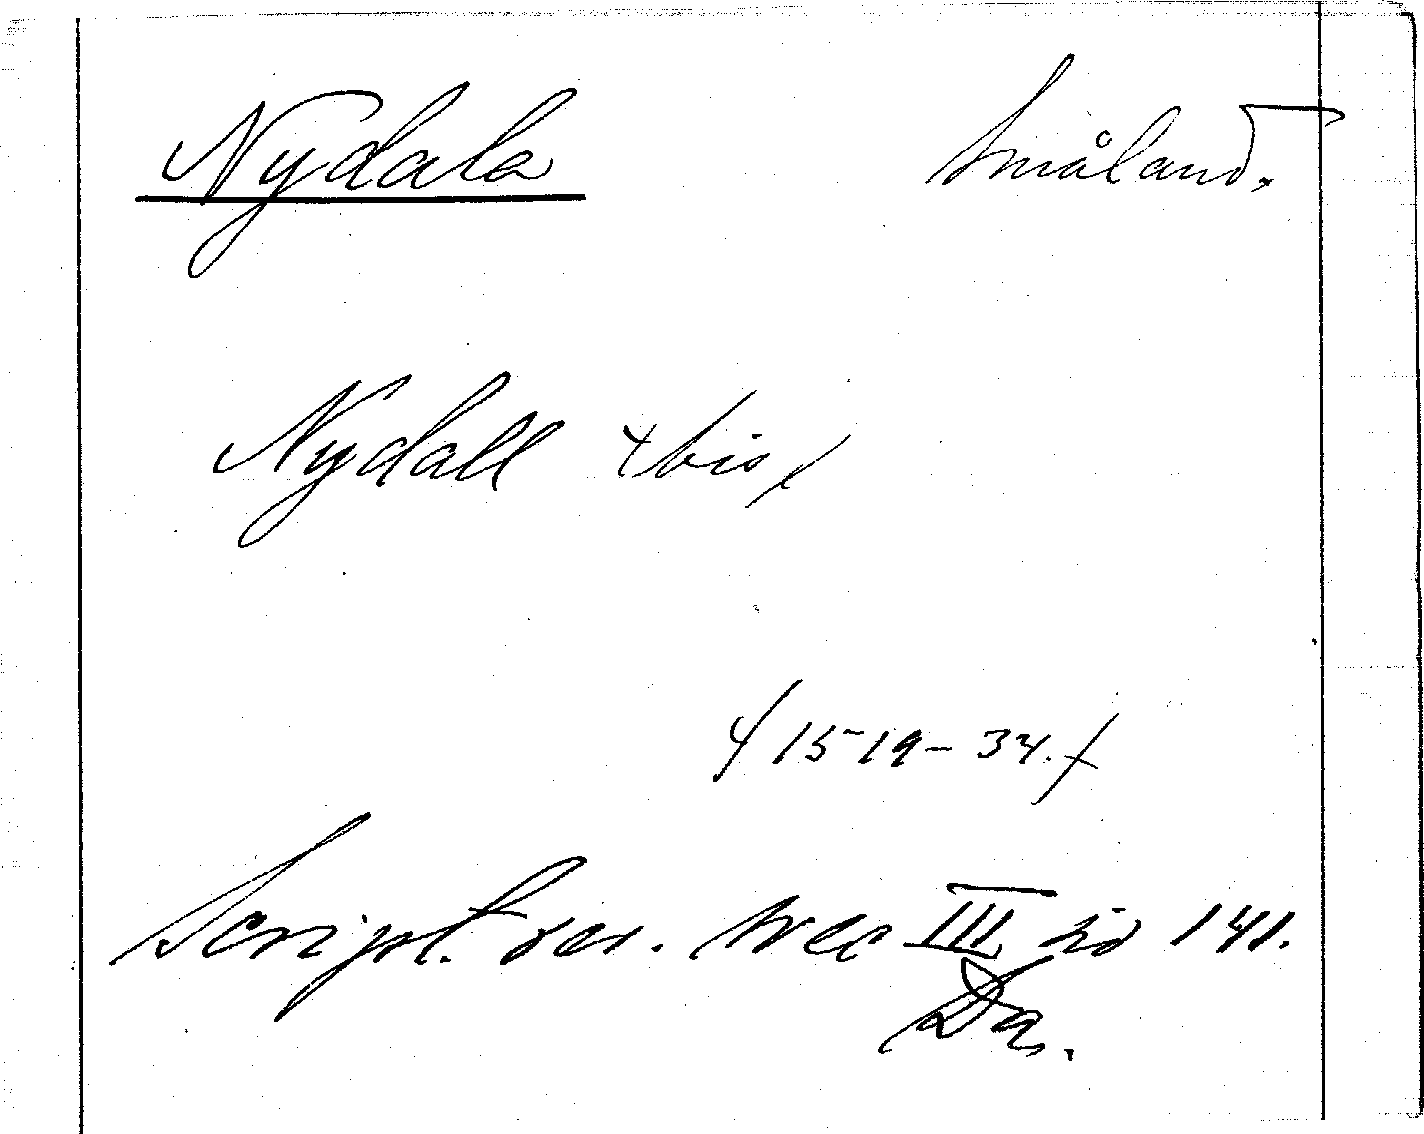 Nydala Småland.
Nydall (bis)
(1519-34.)
Script. rer. svec III sid 141.
Da.